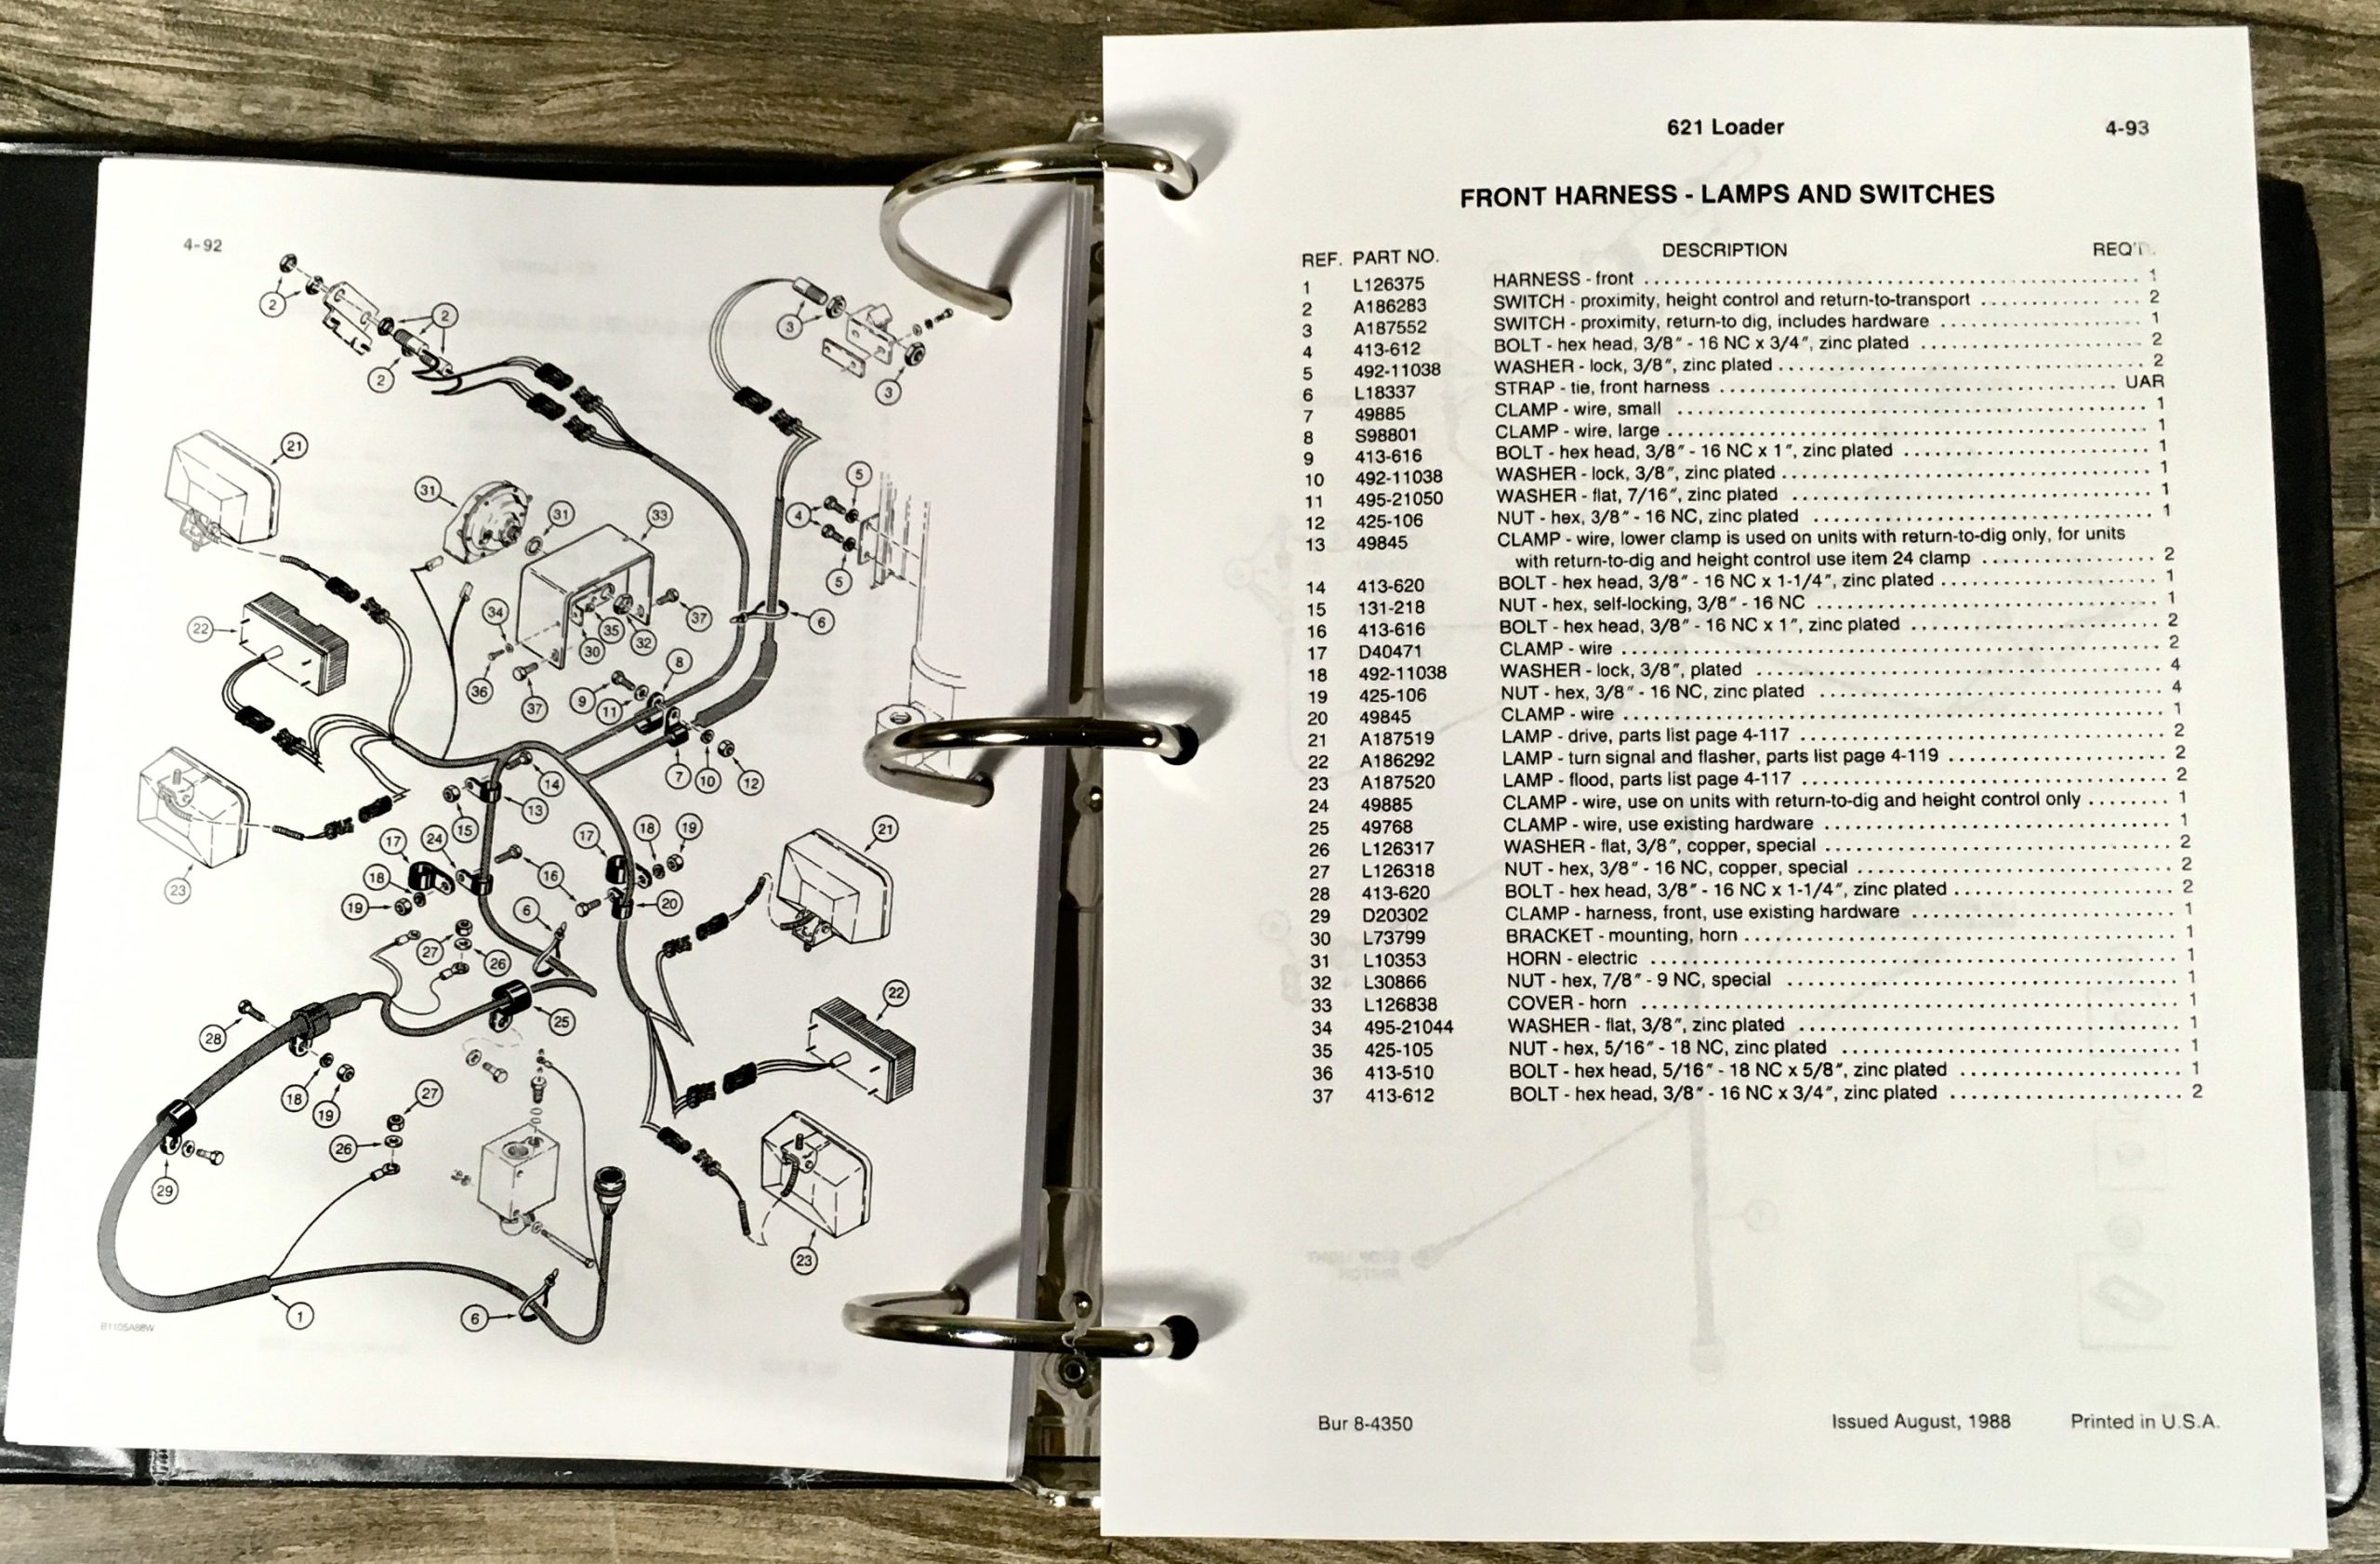 4-92
2
2
2
2
3
3
21
31
31
33
5
4
5
22
34
37
6
35
30
32
36
37
8
9
11
7
10
12
14
13
15
23
17
24
18
19
16
17
18
19
20
21
6
27
26
25
28
18
19
22
27
26
29
23
1
6
B1105A88W
621 Loader
4-93
FRONT HARNESS - LAMPS AND SWITCHES
REF. PART NO. DESCRIPTION REQ'T.
1 L126375 HARNESS - front 1
2 A186283 SWITCH - proximity, height control and return-to-transport 2
3 A187552 SWITCH - proximity, return-to dig, includes hardware 1
4 413-612 BOLT - hex head, 3/8″ - 16 NC x 3/4″, zinc plated 2
5 492-11038 WASHER - lock, 3/8″, zinc plated 2
6 L18337 STRAP - tie, front harness UAR
7 49885 CLAMP - wire, small 1
8 S98801 CLAMP - wire, large 1
9 413-616 BOLT - hex head, 3/8″ - 16 NC x 1″, zinc plated 1
10 492-11038 WASHER - lock, 3/8″, zinc plated 1
11 495-21050 WASHER - flat, 7/16″, zinc plated 1
12 425-106 NUT - hex, 3/8″ - 16 NC, zinc plated 1
13 49845 CLAMP - wire, lower clamp is used on units with return-to-dig only, for units
with return-to-dig and height control use item 24 clamp 2
14 413-620 BOLT - hex head, 3/8″ - 16 NC x 1-1/4″, zinc plated 1
15 131-218 NUT - hex, self-locking, 3/8″ - 16 NC 1
16 413-616 BOLT - hex head, 3/8″ - 16 NC x 1″, zinc plated 2
17 D40471 CLAMP - wire 2
18 492-11038 WASHER - lock, 3/8″, plated 4
19 425-106 NUT - hex, 3/8″ - 16 NC, zinc plated 4
20 49845 CLAMP - wire 1
21 A187519 LAMP - drive, parts list page 4-117 2
22 A186292 LAMP - turn signal and flasher, parts list page 4-119 2
23 A187520 LAMP - flood, parts list page 4-117 2
24 49885 CLAMP - wire, use on units with return-to-dig and height control only 1
25 49768 CLAMP - wire, use existing hardware 1
26 L126317 WASHER - flat, 3/8″, copper, special 2
27 L126318 NUT - hex, 3/8″ - 16 NC, copper, special 2
28 413-620 BOLT - hex head, 3/8″ - 16 NC x 1-1/4″, zinc plated 2
29 D20302 CLAMP - harness, front, use existing hardware 1
30 L73799 BRACKET - mounting, horn 1
31 L10353 HORN - electric 1
32 L30866 NUT - hex, 7/8″ - 9 NC, special 1
33 L126838 COVER - horn 1
34 495-21044 WASHER - flat, 3/8″, zinc plated 1
35 425-105 NUT - hex, 5/16″ - 18 NC, zinc plated 1
36 413-510 BOLT - hex head, 5/16″ - 18 NC x 5/8″, zinc plated 1
37 413-612 BOLT - hex head, 3/8″ - 16 NC x 3/4″, zinc plated 2
Bur 8-4350
Issued August, 1988
Printed in U.S.A.